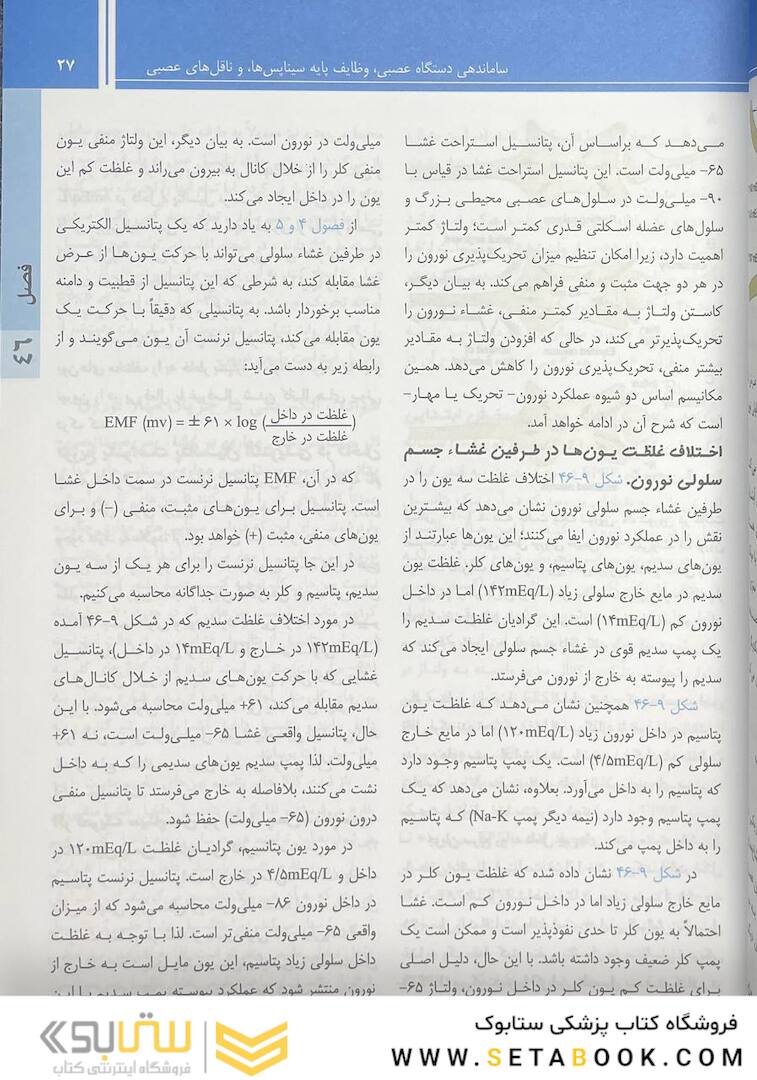 ساماندهی دستگاه عصبی، وظایف پایه سیناپس‌ها، و ناقل‌های عصبی
۲۷
فصل
۴۶
می‌دهد که براساس آن، پتانسیل استراحت غشا
۶۵- میلی‌ولت است. این پتانسیل استراحت غشا در قیاس با
۹۰- میلی‌ولت در سلول‌های عصبی محیطی بزرگ و
سلول‌های عضله اسکلتی قدری کمتر است؛ ولتاژ کمتر
اهمیت دارد، زیرا امکان تنظیم میزان تحریک‌پذیری نورون را
در هر دو جهت مثبت و منفی فراهم می‌کند. به بیان دیگر،
کاستن ولتاژ به مقادیر کمتر منفی، غشاء نورون را
تحریک‌پذیرتر می‌کند، در حالی که افزودن ولتاژ به مقادیر
بیشتر منفی، تحریک‌پذیری نورون را کاهش می‌دهد. همین
مکانیسم اساس دو شیوه عملکرد نورون- تحریک یا مهار-
است که شرح آن در ادامه خواهد آمد.
اختلاف غلظت یون‌ها در طرفین غشاء جسم
سلولی نورون. شکل ۹-۴۶ اختلاف غلظت سه یون را در
طرفین غشاء جسم سلولی نورون نشان می‌دهد که بیشترین
نقش را در عملکرد نورون ایفا می‌کنند؛ این یون‌ها عبارتند از
یون‌های سدیم، یون‌های پتاسیم، و یون‌های کلر. غلظت یون
سدیم در مایع خارج سلولی زیاد (۱۴۲mEq/L) اما در داخل
نورون کم (۱۴mEq/L) است. این گرادیان غلظت سدیم را
یک پمپ سدیم قوی در غشاء جسم سلولی ایجاد می‌کند که
سدیم را پیوسته به خارج از نورون می‌فرستد.
شکل ۹-۴۶ همچنین نشان می‌دهد که غلظت یون
پتاسیم در داخل نورون زیاد (۱۲۰mEq/L) اما در مایع خارج
سلولی کم (۴/۵mEq/L) است. یک پمپ پتاسیم وجود دارد
که پتاسیم را به داخل می‌آورد. بعلاوه، نشان می‌دهد که یک
پمپ پتاسیم وجود دارد (نیمه دیگر پمپ Na-K) که پتاسیم
را به داخل پمپ می‌کند.
در شکل ۹-۴۶ نشان داده شده که غلظت یون کلر در
مایع خارج سلولی زیاد اما در داخل نورون کم است. غشا
احتمالاً به یون کلر تا حدی نفوذپذیر است و ممکن است یک
پمپ کلر ضعیف وجود داشته باشد. با این حال، دلیل اصلی
برای غلظت کم یون کلر در داخل نورون، ولتاژ ۶۵-
میلی‌ولت در نورون است. به بیان دیگر، این ولتاژ منفی یون
منفی کلر را از خلال کانال به بیرون می‌راند و غلظت کم این
یون را در داخل ایجاد می‌کند.
از فصول ۴ و ۵ به یاد دارید که یک پتانسیل الکتریکی
در طرفین غشاء سلولی می‌تواند با حرکت یون‌ها از عرض
غشا مقابله کند، به شرطی که این پتانسیل از قطبیت و دامنه
مناسب برخوردار باشد. به پتانسیلی که دقیقاً با حرکت یک
یون مقابله می‌کند، پتانسیل نرنست آن یون می‌گویند و از
رابطه زیر به دست می‌آید:
EMF (mv) = ± ۶۱ × log (غلظت در داخل / غلظت در خارج)
که در آن، EMF پتانسیل نرنست در سمت داخل غشا
است. پتانسیل برای یون‌های مثبت، منفی (−) و برای
یون‌های منفی، مثبت (+) خواهد بود.
در این جا پتانسیل نرنست را برای هر یک از سه یون
سدیم، پتاسیم و کلر به صورت جداگانه محاسبه می‌کنیم.
در مورد اختلاف غلظت سدیم که در شکل ۹-۴۶ آمده
(۱۴۲mEq/L در خارج و ۱۴mEq/L در داخل)، پتانسیل
غشایی که با حرکت یون‌های سدیم از خلال کانال‌های
سدیم مقابله می‌کند، ۶۱+ میلی‌ولت محاسبه می‌شود. با این
حال، پتانسیل واقعی غشا ۶۵- میلی‌ولت است، نه ۶۱+
میلی‌ولت. لذا پمپ سدیم یون‌های سدیمی را که به داخل
نشت می‌کنند، بلافاصله به خارج می‌فرستد تا پتانسیل منفی
درون نورون (۶۵- میلی‌ولت) حفظ شود.
در مورد یون پتانسیم، گرادیان غلظت ۱۲۰mEq/L در
داخل و ۴/۵mEq/L در خارج است. پتانسیل نرنست پتاسیم
در داخل نورون ۸۶- میلی‌ولت محاسبه می‌شود که از میزان
واقعی ۶۵- میلی‌ولت منفی‌تر است. لذا با توجه به غلظت
داخل سلولی زیاد پتاسیم، این یون مایل است به خارج از
نورون منتشر شود که عملکرد پیوسته پمپ سدیم با این
فروشگاه کتاب پزشکی ستابوک
WWW.SETABOOK.COM
ستابوک
فروشگاه اینترنتی کتاب